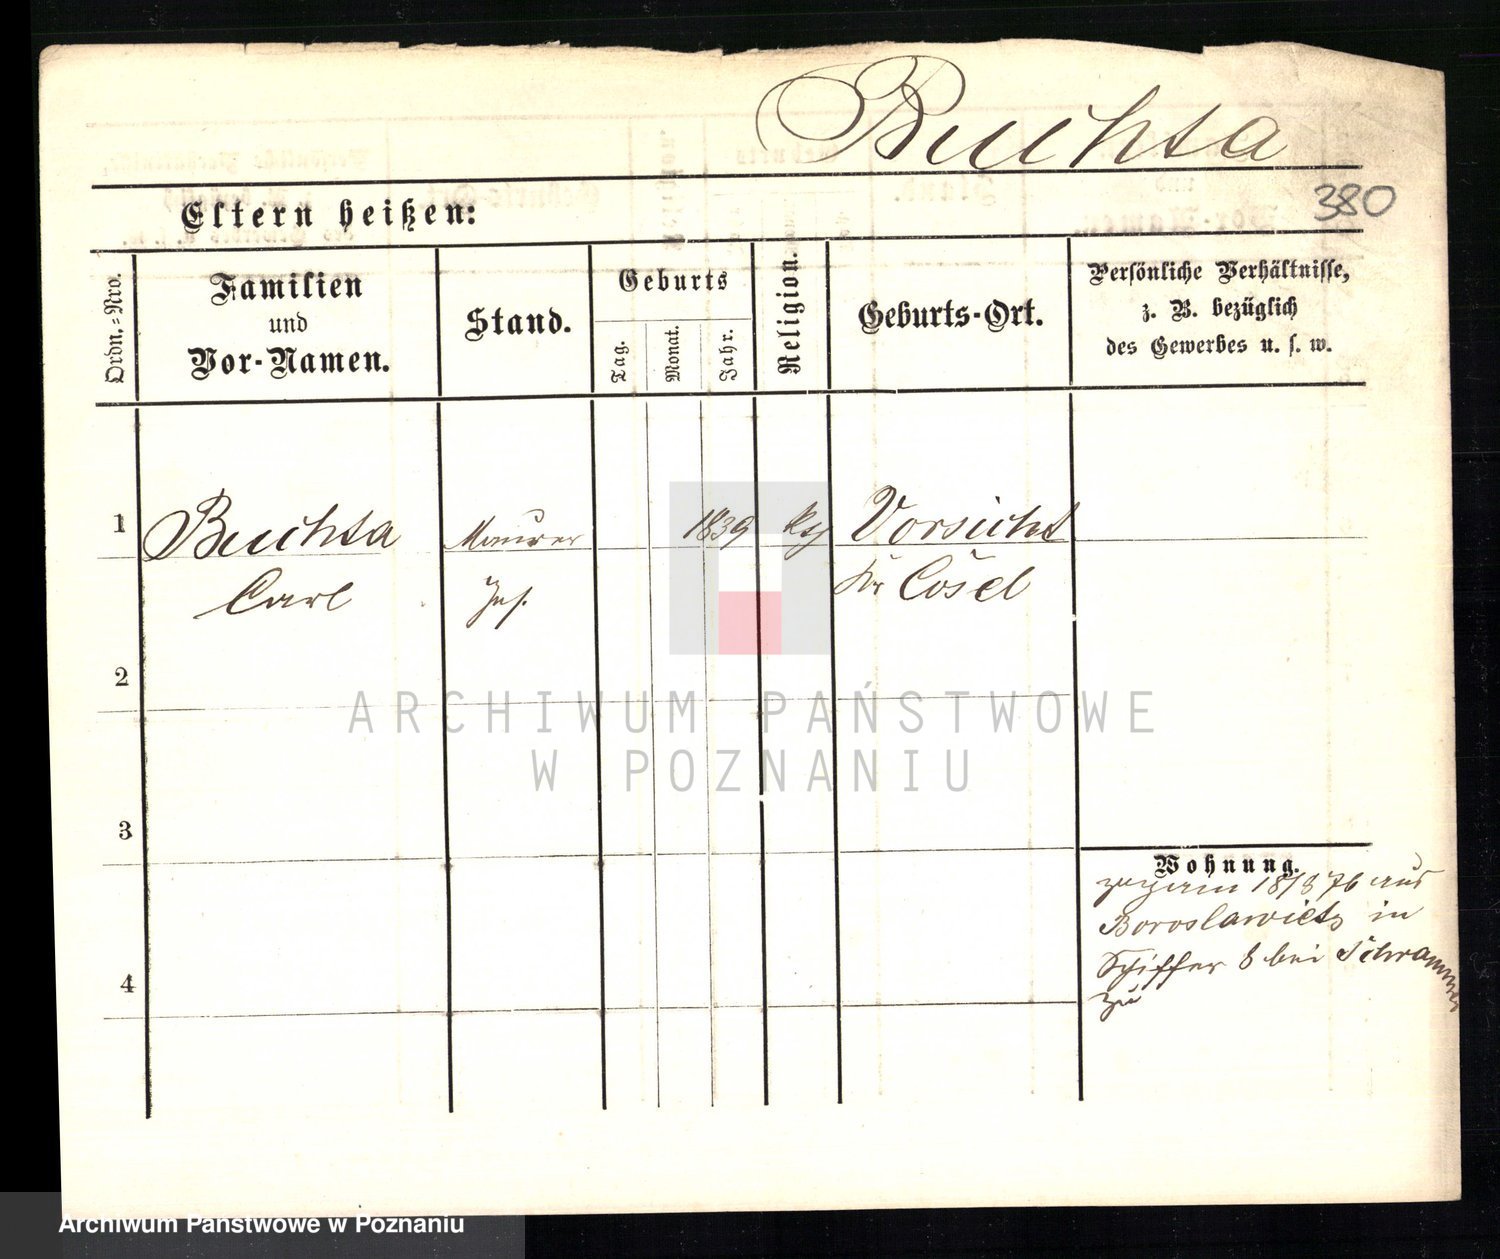 Buchta
380
Eltern heißen:
Ordn.-Nro.
Familien
und
Vor-Namen.
Stand.
Geburts
Tag.
Monat.
Jahr.
Religion.
Geburts-Ort.
Persönliche Verhältnisse,
z. B. bezüglich
des Gewerbes u. s. w.
1
Buchta
Maurer
1839
kth
Vorsicht
Carl
Kr Cosel
2
3
4
Wohnung.
aus
Boroslawietz in
Schiffer 8 bei Schrammer
zu
ARCHIWUM PAŃSTWOWE
W POZNANIU
Archiwum Państwowe w Poznaniu